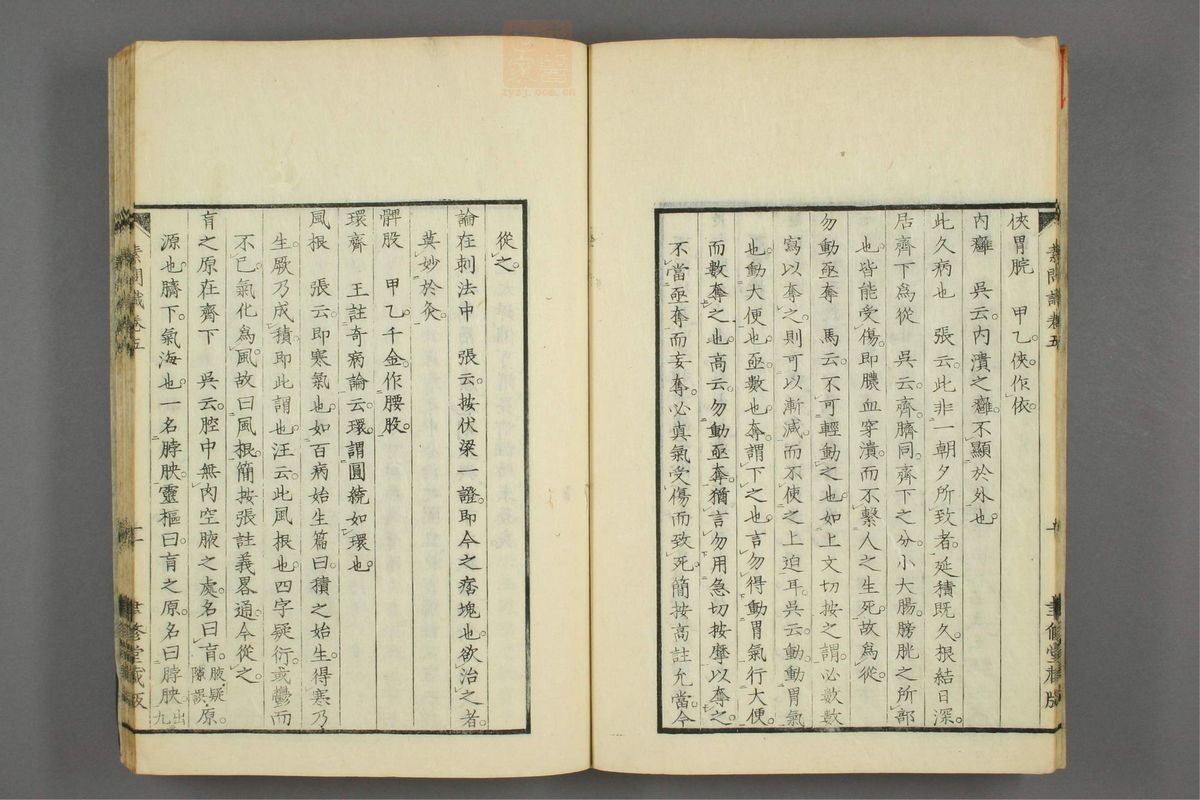 俠胃脘　甲乙俠作依
內癰　吳云內潰之癰不顯於外也
此久病也　張云此非一朝夕所致者延積既久根結日深
居齊下爲從　吳云齊臍同齊下之分小大腸膀胱之所部
也皆能受傷即膿血穿潰而不繫人之生死故爲從
勿動亟奪　馬云不可輕動之也如上文切按之謂必數數
寫以奪之則可以漸減而不使之上迫耳吳云動動胃氣
也動大便也亟數也奪謂下之也言勿得動胃氣行大便
而數奪之也高云勿動亟奪猶言勿用急切按摩以奪之
不當亟奪而妄奪必眞氣受傷而致死簡按高註允當今
素問識卷五
聿修堂藏版
從之
論在刺法中　張云按伏梁一證即今之痞塊也欲治之者
莫妙於灸
髀股　甲乙千金作腰股
環齊　王註奇病論云環謂圓繞如環也
風根　張云即寒氣也如百病始生篇曰積之始生得寒乃
生厥乃成積即此謂也汪云此風根也四字疑衍或鬱而
不已氣化爲風故曰風根簡按張註義畧通今從之
肓之原在齊下　吳云腔中無肉空腋之處名曰肓腋疑隙誤原
源也臍下氣海也一名脖胦靈樞曰肓之原名曰脖胦出九
素問識卷五
聿修堂藏版